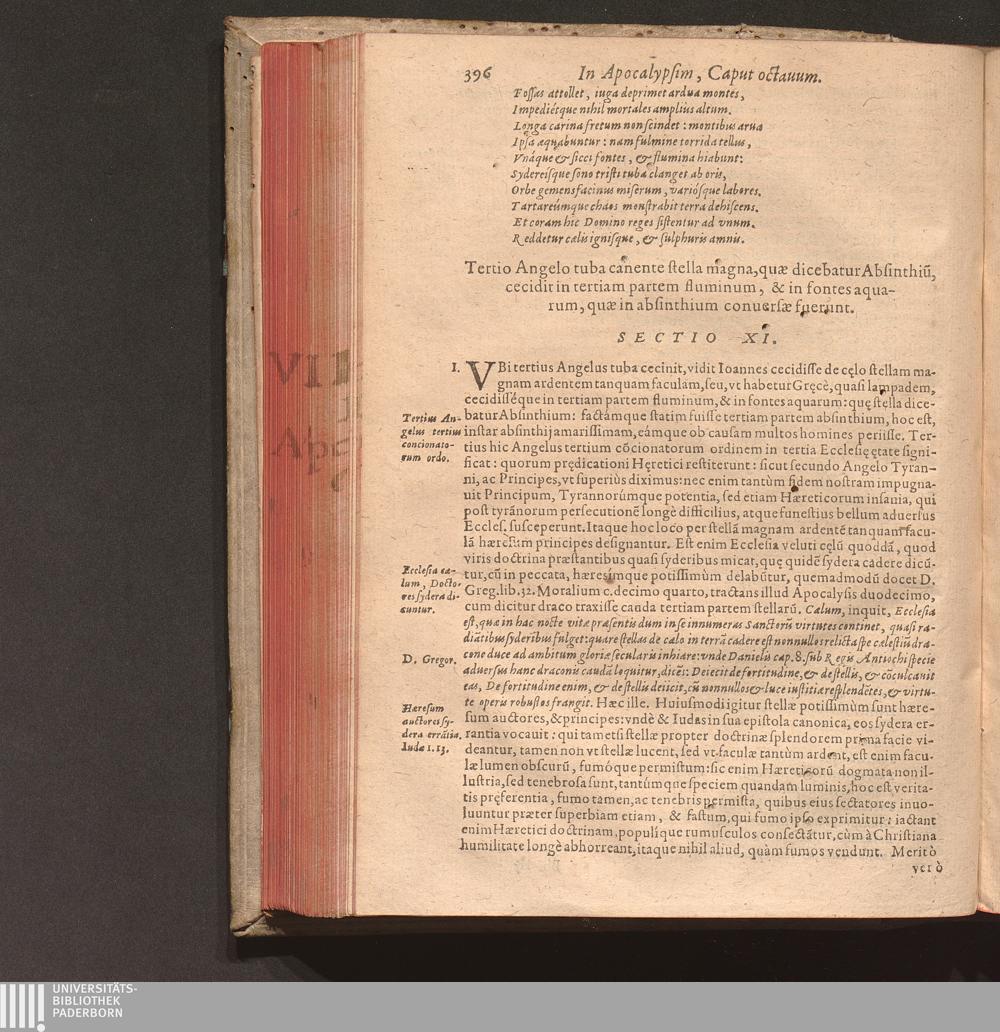 396 In Apocalypsim, Caput octauum.
Fossas attollet, iuga deprimet ardua montes,
Impediétque nihil mortales amplius altum.
Longa carina fretum non scindet: montibus arua
Ipsa æquabuntur: nam fulmine torrida tellus,
Vnáque & sicci fontes, & flumina hiabunt:
Sydereisque sono tristi tuba clanget ab oris,
Orbe gemens facinus miserum, variósque labores.
Tartareúmque chaos monstrabit terra dehiscens.
Et coram hic Domino reges sistentur ad vnum.
Reddetur cælis ignisque, & sulphuris amnis.
Tertio Angelo tuba canente stella magna, quæ dicebatur Absinthiũ,
cecidit in tertiam partem fluminum, & in fontes aqua-
rum, quæ in absinthium conuersæ fuerunt.
SECTIO XI.
I. VBi tertius Angelus tuba cecinit, vidit Ioannes cecidisse de cęlo stellam ma-
gnam ardentem tanquam faculam, seu, vt habetur Gręcè, quasi lampadem,
cecidisséque in tertiam partem fluminum, & in fontes aquarum: quę stella dice-
batur Absinthium: factámque statim fuisse tertiam partem absinthium, hoc est,
instar absinthij amarissimam, eámque ob causam multos homines periisse. Ter-
tius hic Angelus tertium cõcionatorum ordinem in tertia Ecclesię ętate signi-
ficat: quorum prędicationi Hęretici restiterunt: sicut secundo Angelo Tyran-
ni, ac Principes, vt superiùs diximus: nec enim tantùm fidem nostram impugna-
uit Principum, Tyrannorúmque potentia, sed etiam Hæreticorum insania, qui
post tyrãnorum persecutionẽ longè difficilius, atque funestius bellum aduersus
Eccles. susceperunt. Itaque hoc loco per stellã magnam ardentẽ tanquam facu-
lã hæresum principes designantur. Est enim Ecclesia veluti cęlũ quoddã, quod
viris doctrina præstantibus quasi syderibus micat, quę quidẽ sydera cadere dicũ-
tur, cũ in peccata, hæresimque potissimùm delabũtur, quemadmodũ docet D.
Greg. lib. 32. Moralium c. decimo quarto, tractans illud Apocalysis duodecimo,
cum dicitur draco traxisse cauda tertiam partem stellarũ. Cælum, inquit, Ecclesia
est, quæ in hac nocte vitæ præsentis dum in se innumeras Sanctorũ virtutes continet, quasi ra-
diãtibus syderibus fulget: quare stellas de cælo in terrã cadere est nonnullos relicta spe cælestiũ dra-
cone duce ad ambitum gloriæ secularis inhiare: vnde Danielis cap. 8. sub Regis Antiochi specie
aduersus hanc draconis caudã loquitur, dicẽs: Deiecit de fortitudine, & de stellis, & cõculcauit
eas, De fortitudine enim, & de stellis deiicit, cũ nonnullos & luce iustitiæ resplendẽtes, & virtu-
te operis robustos frangit. Hæc ille. Huiusmodi igitur stellæ potissimùm sunt hære-
sum auctores, & principes: vndè & Iudas in sua epistola canonica, eos sydera er-
rantia vocauit: qui tametsi stellæ propter doctrinæ splendorem prima facie vi-
deantur, tamen non vt stellæ lucent, sed vt faculæ tantùm ardent, est enim facu-
læ lumen obscurũ, fumóque permistum: sic enim Hæreticorũ dogmata non il-
lustria, sed tenebrosa sunt, tantúmque speciem quandam luminis, hoc est verita-
tis pręferentia, fumo tamen, ac tenebris permista, quibus eius sectatores inuo-
luuntur præter superbiam etiam, & fastum, qui fumo ipso exprimitur: iactant
enim Hæretici doctrinam, populíque rumusculos consectãtur, cùm à Christiana
humilitate longè abhorreant, itaque nihil aliud, quàm fumos vendunt. Meritò
verò
Tertius An-
gelus tertius
concionato-
rum ordo.
Ecclesia cæ-
lum, Docto-
res sydera di-
cuntur.
D. Gregor.
Hæresum
auctores sy-
dera errãtia.
Iudæ 1. 13.
UNIVERSITÄTS-
BIBLIOTHEK
PADERBORN